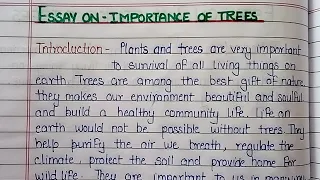 ESSAY ON - IMPORTANCE OF TREES
Introduction - Plants and trees are very important
to survival of all living things on
earth. Trees are among the best gift of nature.
They makes our environment beautiful and soulful
and build a healthy community life. Life on
earth would not be possible without trees. They
help purify the air we breath, regulate the
climate, protect the soil and provide home for
wild life. They are important to us in many